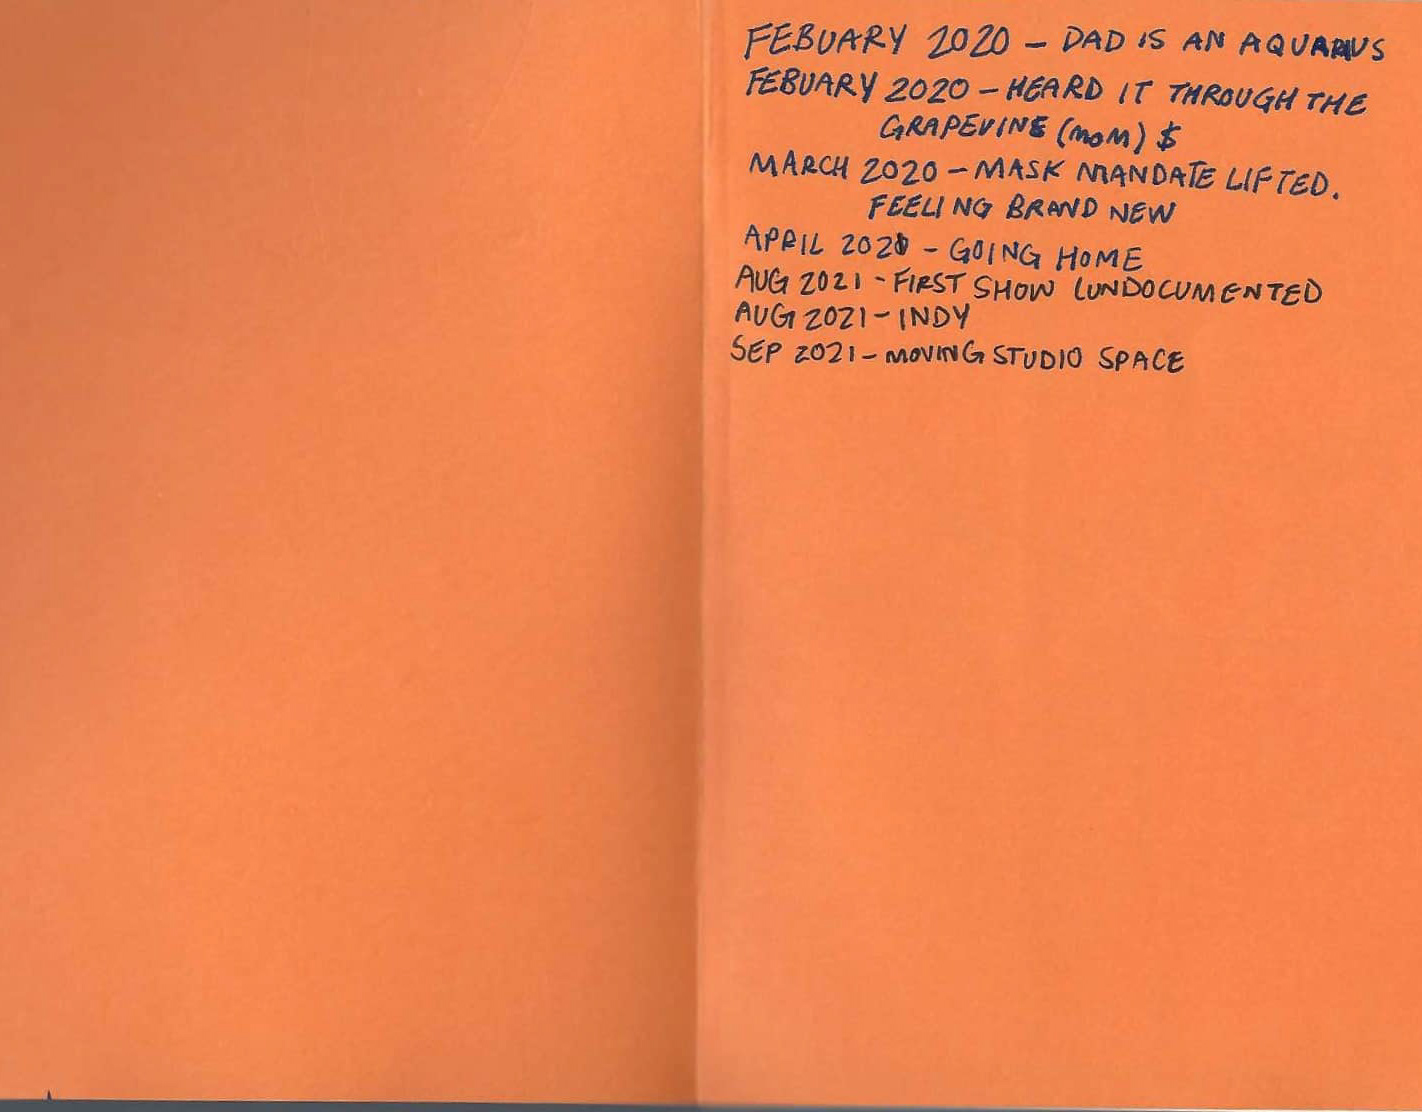 FEBUARY 2020 - DAD IS AN AQUARIUS
FEBUARY 2020 - HEARD IT THROUGH THE
GRAPEVINE (MOM) $
MARCH 2020 - MASK MANDATE LIFTED.
FEELING BRAND NEW
APRIL 2020 - GOING HOME
AUG 2021 - FIRST SHOW (UNDOCUMENTED
AUG 2021 - INDY
SEP 2021 - MOVING STUDIO SPACE